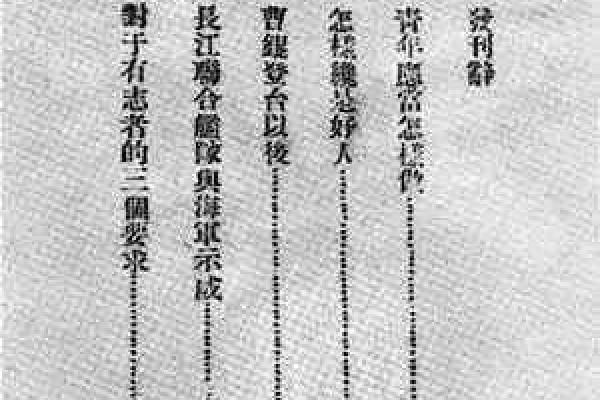 發刊辭
青年應當怎樣做……………………
怎樣纔是好人……………………
曹錕登台以後……………………
長江聯合艦隊與海軍示威…………
對于有志者的三個要求……………